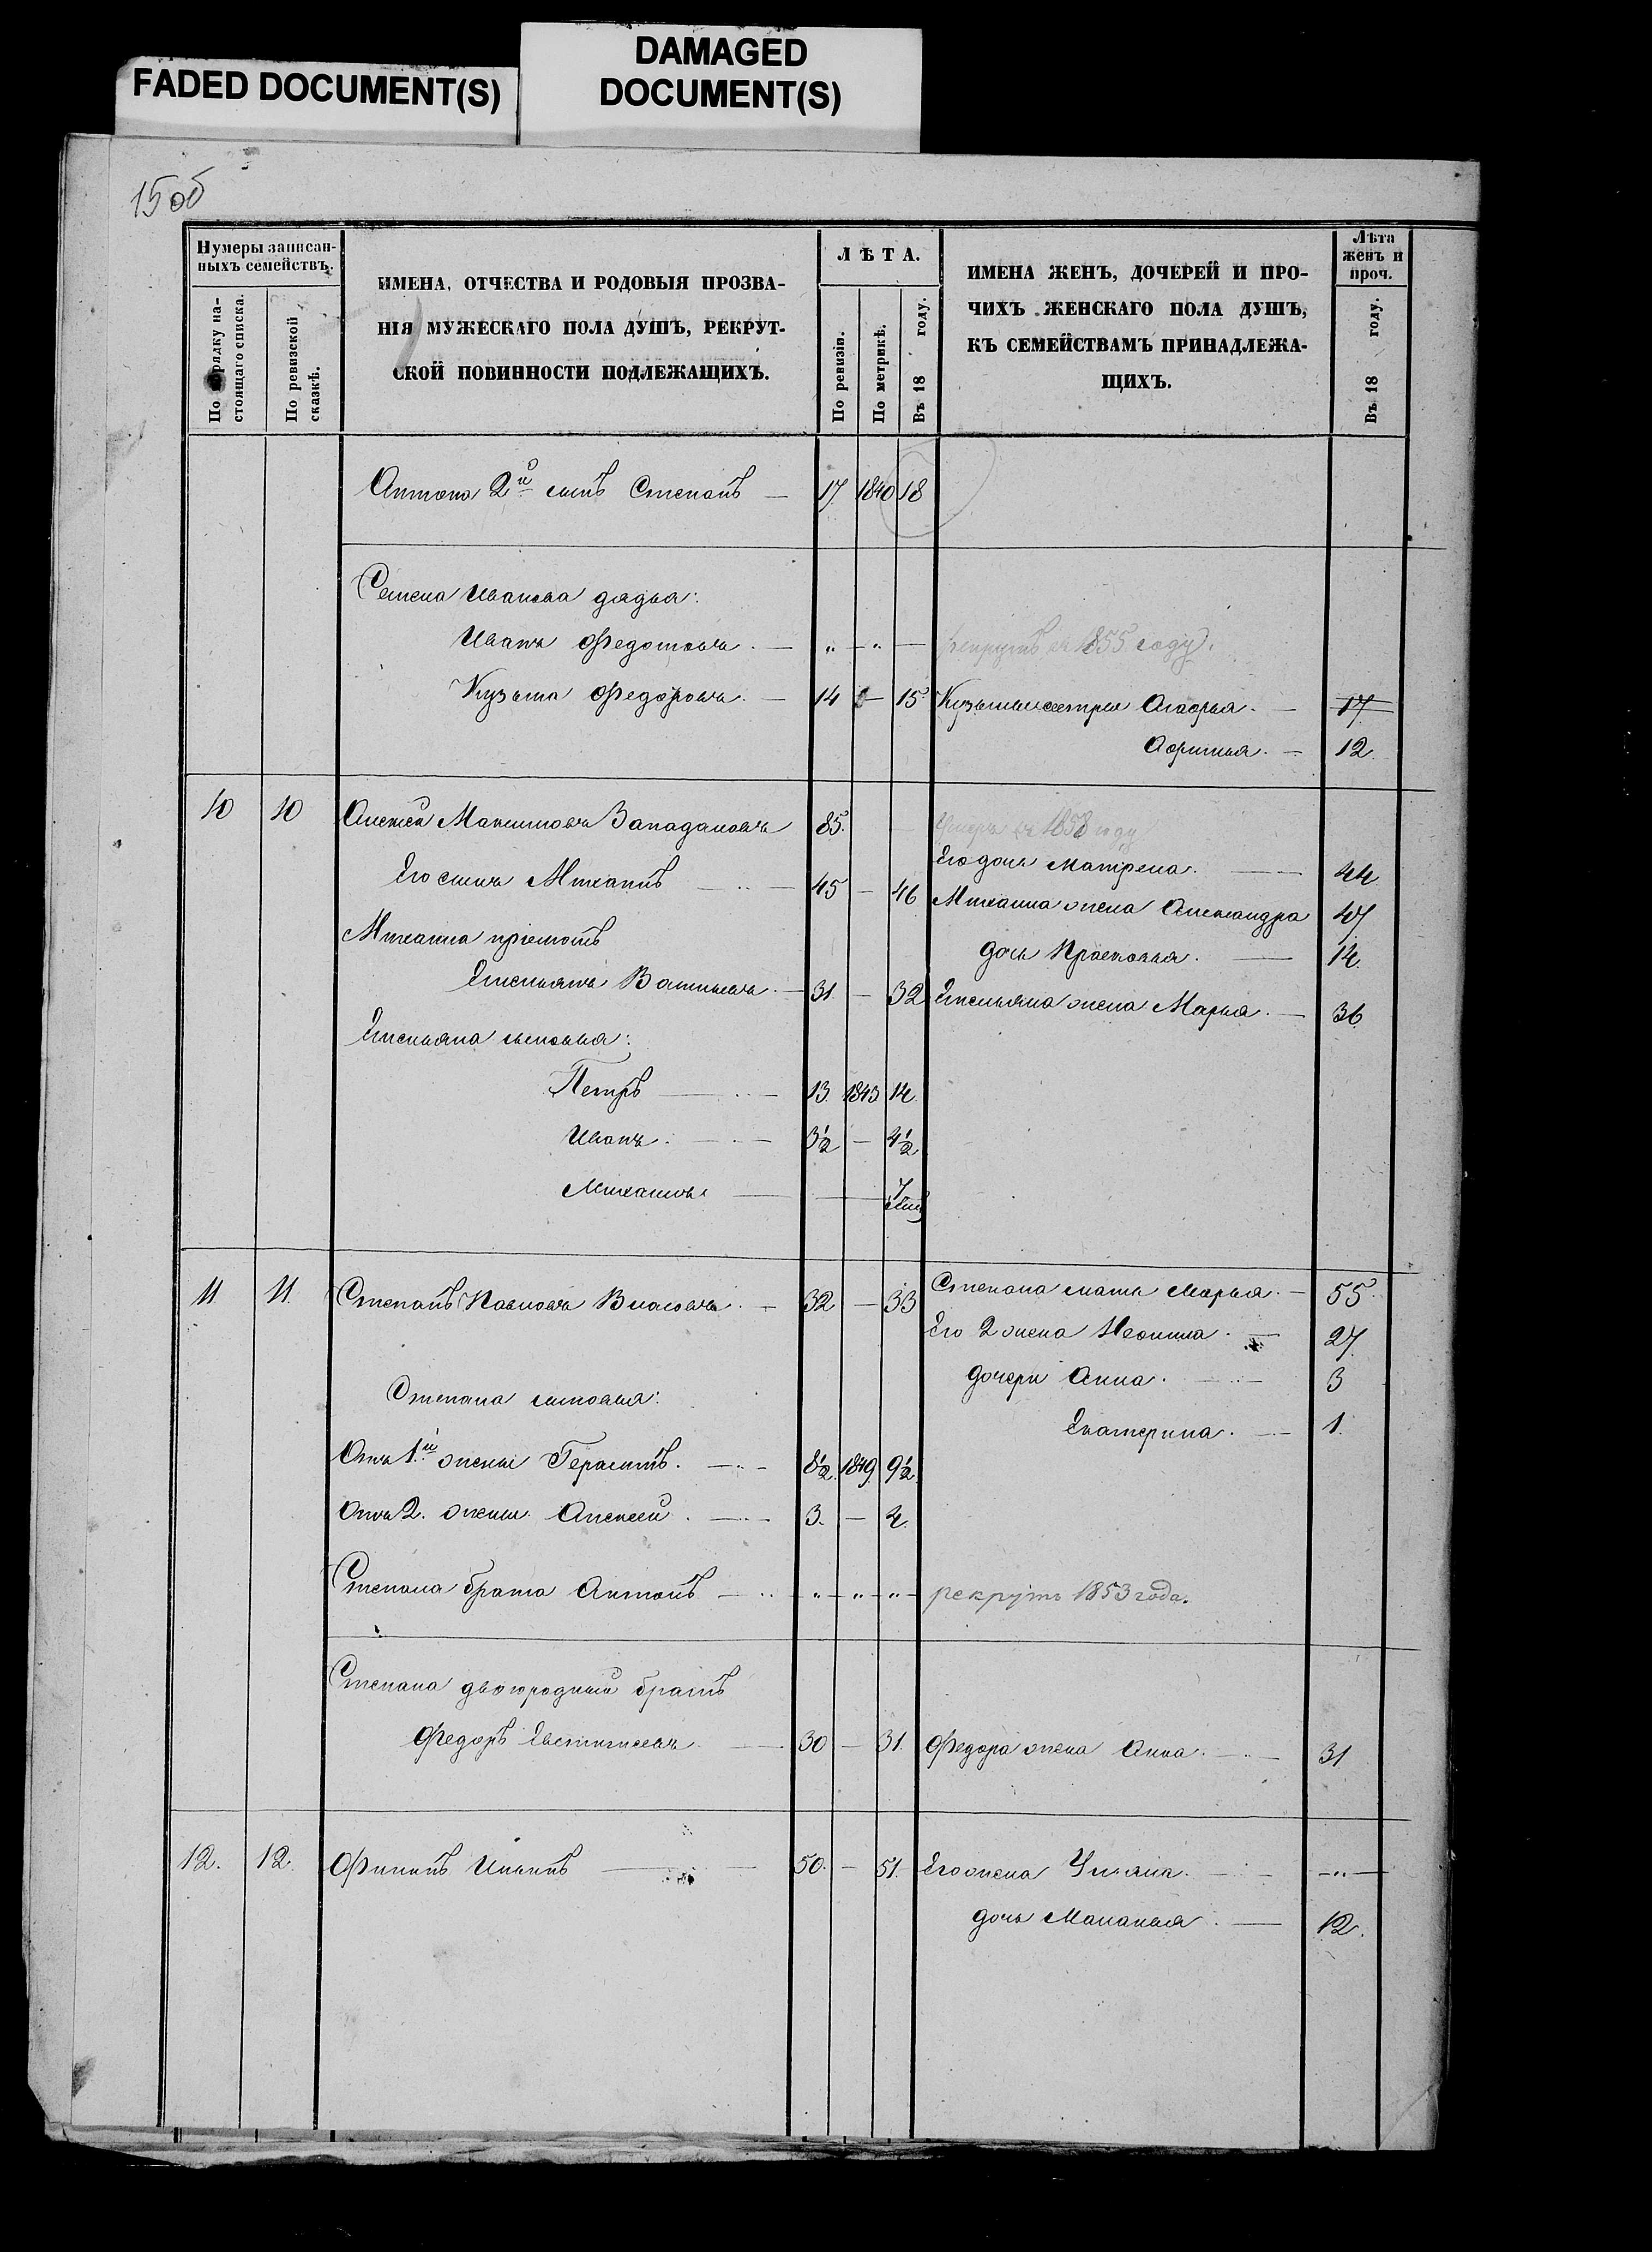 FADED DOCUMENT(S)
DAMAGED
DOCUMENT(S)
15 об
Нумеры записан-
ныхъ семействъ.
По порядку на-
стоящаго списка.
По ревизской
сказкѣ.
ИМЕНА, ОТЧЕСТВА И РОДОВЫЯ ПРОЗВА-
НІЯ МУЖЕСКАГО ПОЛА ДУШЪ, РЕКРУТ-
СКОЙ ПОВИННОСТИ ПОДЛЕЖАЩИХЪ.
ЛѢТА.
По ревизіи.
По метрикѣ.
Въ 18 году.
ИМЕНА ЖЕНЪ, ДОЧЕРЕЙ И ПРО-
ЧИХЪ ЖЕНСКАГО ПОЛА ДУШЪ,
КЪ СЕМЕЙСТВАМЪ ПРИНАДЛЕЖА-
ЩИХЪ.
Лѣта
женъ и
проч.
Въ 18 году.
Антона 2й сынъ Степанъ — 17 1840 18
Семена Иванова дядья:
Иванъ Федотовъ. — „ — „ — рекрутъ въ 1855 году.
Кузьма Федоровъ. — 14 — 15 Кузьмы сестры Агафья. — 17
Афимья. — 12.
10 10 Алексей Максимовъ 85. — Умеръ въ 1858 году
Его дочь Матрена. — 44
Его сынъ Михаилъ — 45 — 46 Михаила жена Александра 47
Михаила пріемышъ дочь Прасковья. — 14.
Емельянъ — 31 — 32 Емельяна жена Марья. — 36
Емельяна сыновья:
Петръ — 13. 1843 14.
Иванъ. — 3½ — 4½
Михаилъ — 7
11. 11. Степанъ Павловъ Власовъ. — 32 — 33 Степана мать Марья. — 55.
Его 2 жена — 27.
дочери Анна. — 3
Степана сыновья:
Екатерина. — 1.
Отъ 1й жены Герасимъ. — 8½. 1849 9½.
Отъ 2. жены Алексей. — 3. — 4.
Степана брата Антонъ — „ — „ — „ — рекрутъ 1853 года.
Степана двоюродный братъ
Федоръ Евстигнеевъ. — 30 — 31. Федора жена Анна. — 31
12. 12. Филипъ Ильинъ — 50. — 51. Его жена Ульяна. — „ —
дочь Маланья. — 12.